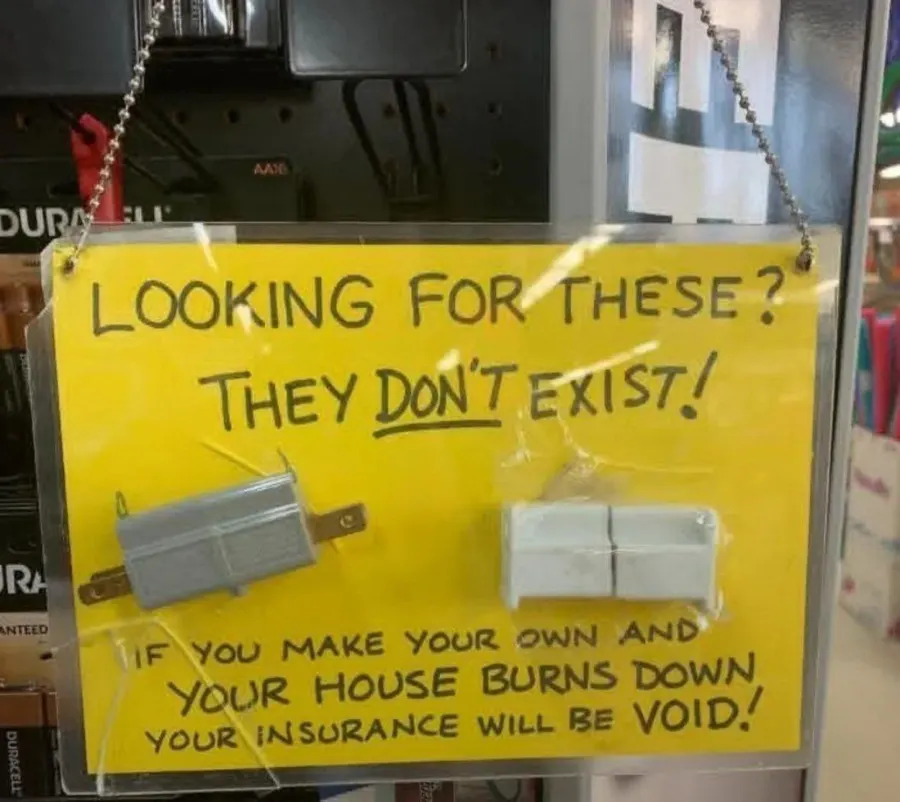 AA16
DURACELL
LOOKING FOR THESE?
THEY DON'T EXIST!
IF YOU MAKE YOUR OWN AND
YOUR HOUSE BURNS DOWN
YOUR INSURANCE WILL BE VOID!
URA
ANTEED
DURACELL